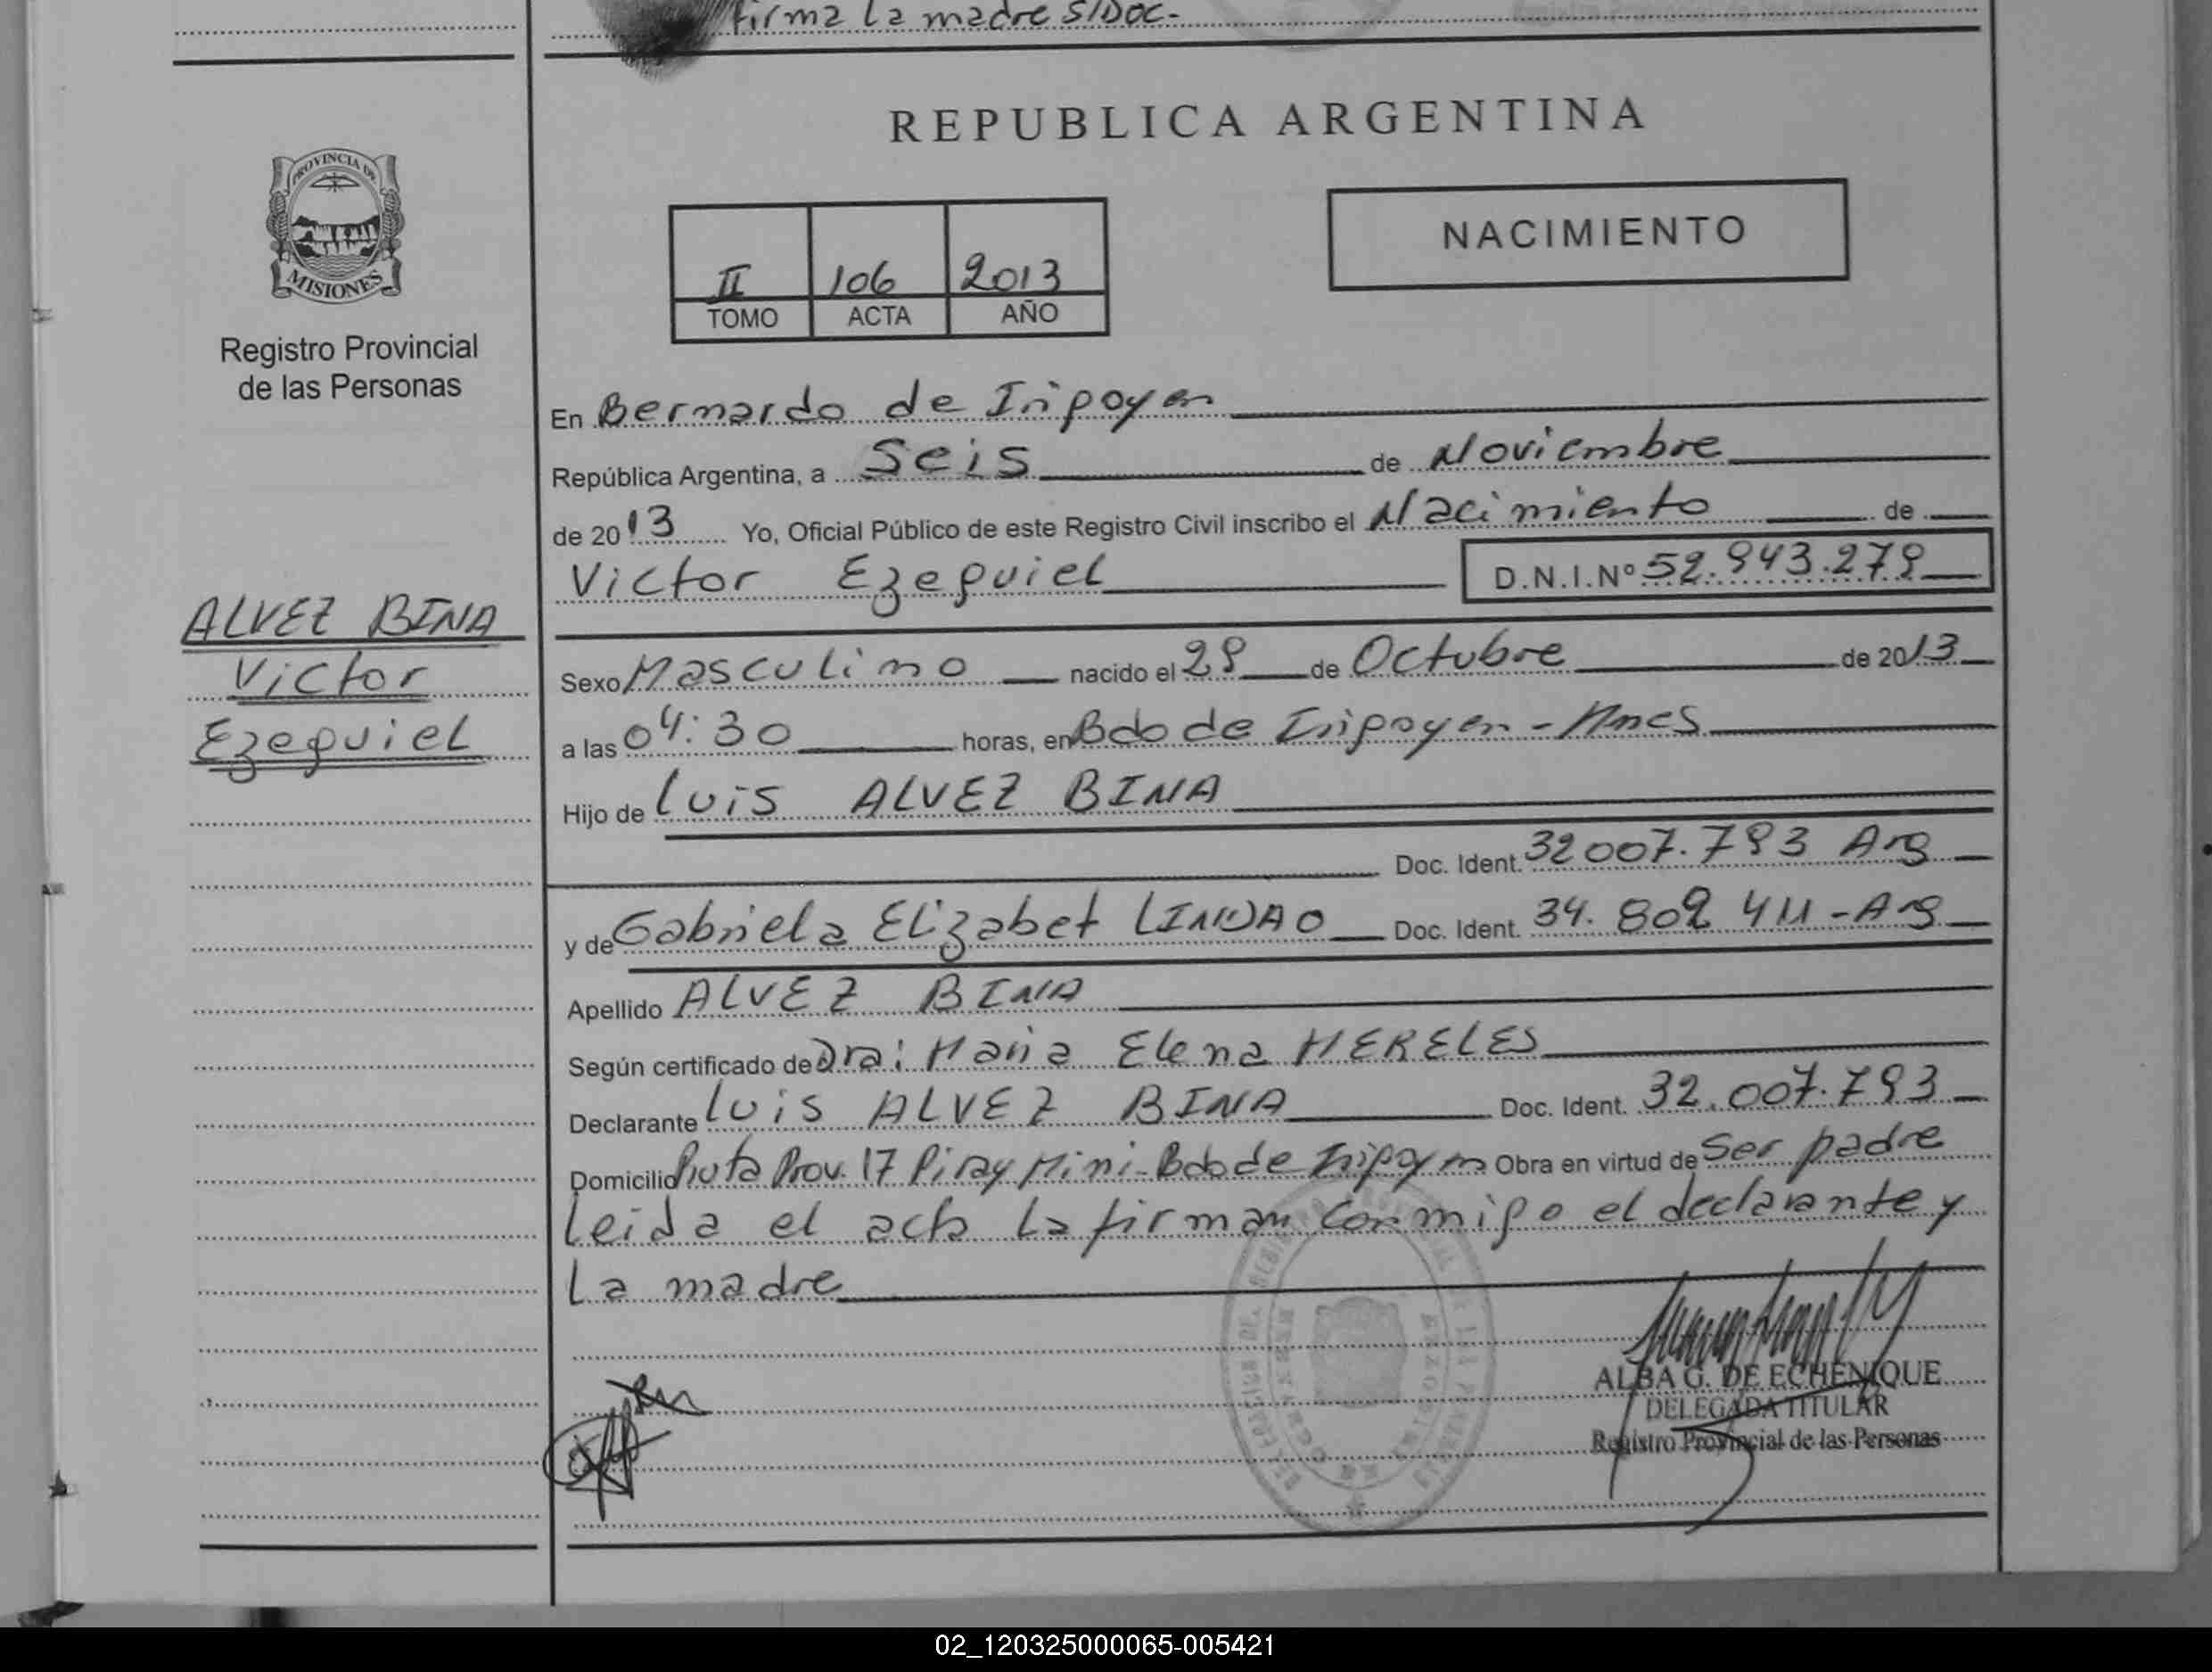 firma la madre S/Doc.-
REPUBLICA ARGENTINA
PROVINCIA DE
MISIONES
Registro Provincial
de las Personas
II 106 2013
TOMO ACTA AÑO
NACIMIENTO
En Bernardo de Irigoyen
República Argentina, a Seis de Noviembre
de 2013 Yo, Oficial Público de este Registro Civil inscribo el Nacimiento de
Victor Ezequiel D.N.I.Nº 52.943.279
ALVEZ BINA
Victor
Ezequiel
Sexo Masculino nacido el 29 de Octubre de 2013
a las 04:30 horas, en Bdo de Irigoyen - Mnes
Hijo de Luis ALVEZ BINA
Doc. Ident. 32007.793 Arg
y de Gabriela Elizabet Doc. Ident. 34.802 411 - Arg
Apellido ALVEZ BINA
Según certificado de Dra: Maria Elena MERELES
Declarante Luis ALVEZ BINA Doc. Ident. 32.007.793
Domicilio Ruta Prov. 17 Piray Mini - Bdo de Irigoyen Obra en virtud de Ser padre
Leida el acta la firman conmigo el declarante y
La madre
ALBA G. DE ECHENIQUE
DELEGADA TITULAR
Registro Provincial de las Personas
02_120325000065-005421